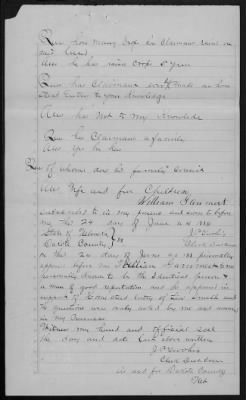 Que how many Crops has Claimant raised on
said Land
Ans he has raised Crops 5 years
Que has Claimant ever made an home
stead Entry to your knowledge
Ans has Not to my Knowledge
Que has Claimant a family
Ans Yes he has
Que Of whom does his family Consist
Ans Wife and five Children
William Gammart
Subscribed to in my presence and sworn to before
me this 24 day of June A.D. 188
State of Nebraska
Dakota County } ss
On this 24 day of June AD 188 personally
appeared before me William Gammart to me
personally known to be the identical person &
a man of good reputation and he appeared in
support of Homestead Entry of Smith and
the questions were duly asked by me and answered
in my Presence
Witness my hand and official Seal
the day and date last above written
in and for Dakota County
Neb